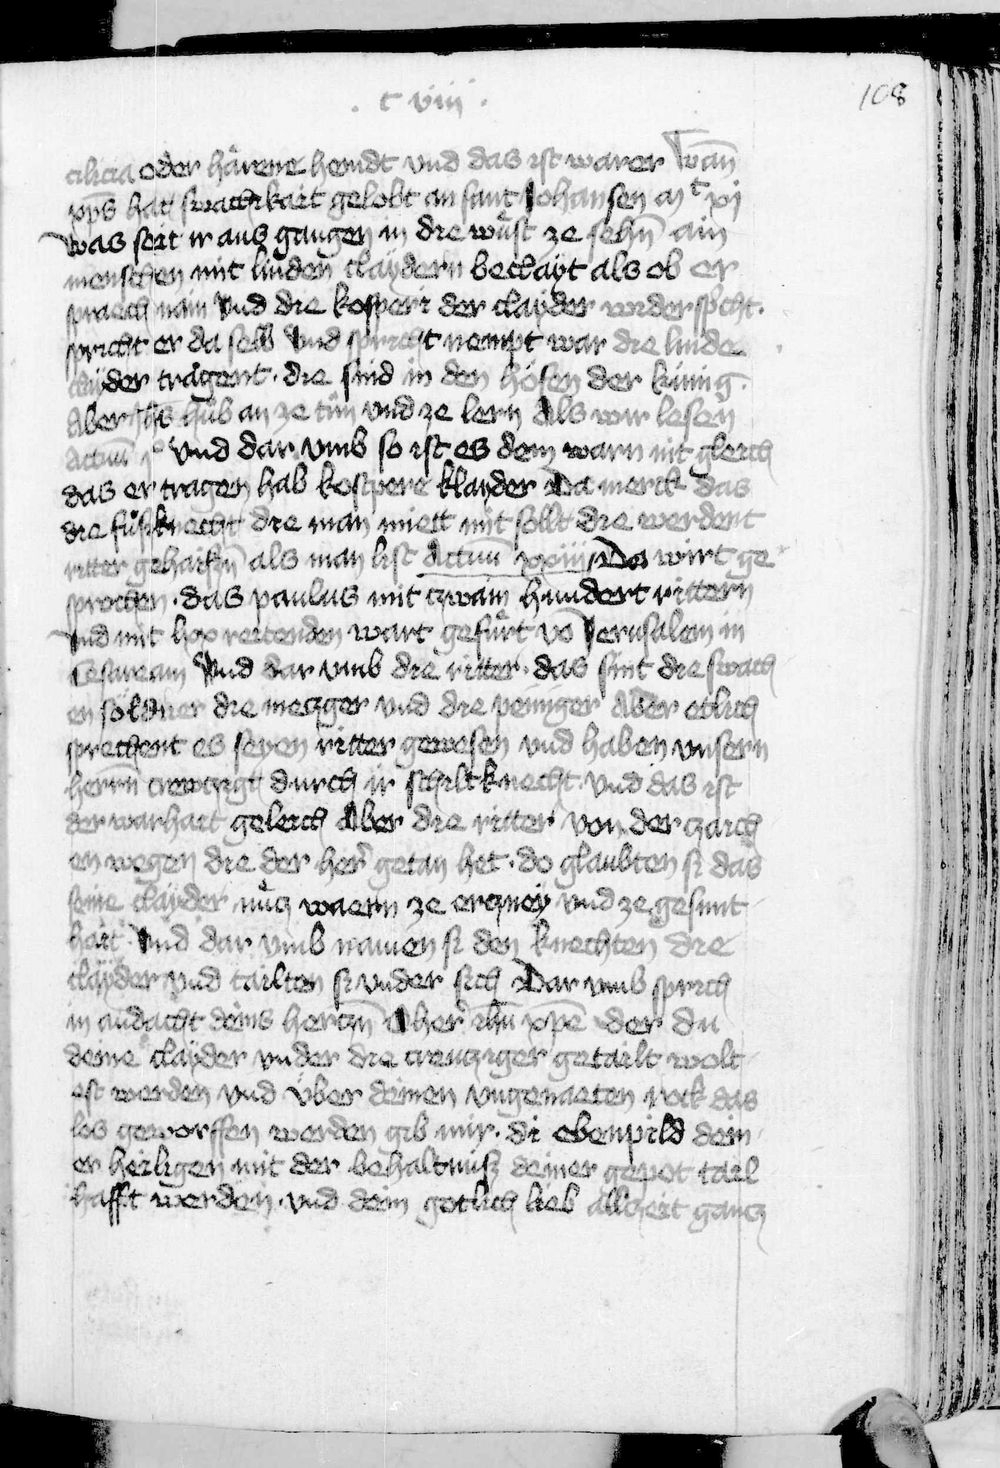 . c viii .
108
cilicia oder härene hemdt vnd das ist warer Wan̄
xp̄s hat swachikait gelobt an sant Johansen mt xj
was seit ir aus gangen in die wůst ze sehn̄ ain
menschen mit linden claydern beclayt als ob er
spraech nain Vnd die kosperi der clayder widersp̄cht.
spricht er da selb Vnd spricht nempt war die linde
clayder tragent. die sind in den hösen der küinig.
Aber jh̄s hůb an ze tůn vnd ze lern Als wir lesen
Actuu͂ jo vnd dar vmb so ist es dem warn nit gleich
das er tragen hab kospere klayder Da merck das
die fůßknecht die man miett mit sollt die werdent
ritter gehaissn̄ als man list Actuu͂ xxiij Da wirt ge
sprochen. das paulus mit zwain hundert rittern
vnd mit lxx reitenden wart gefůrt vo͂ Jerusalem in
Cesaream Vnd dar vmb die ritter. das sint die swach
en söldner die mezger vnd die peiniger Aber etlich
sprechent es seyen ritter gewesen vnd haben vnsern
herrn̄ crewczigt durch ir schiltknecht vnd das ist
der warhait geleich Aber die ritter von der zaich
en wegen die der her̄ getan het. do glaubten si das
seine clayder nůcz waern ze erczney vnd ze gesunt
hait Vnd dar vmb namen si den knechten die
clayder vnd tailten si vnder sich Dar vmb sprich
in andacht deins herczn̄ O her̄ ihū xp̄e der du
deine clayder vnder die creucziger getailt wolt
est werden vnd vber deinen vngenaeten rock das
los geworffen werden gib mir. di ebenpild dein
er heiligen mit der behaltnuß deiner gepot tail
hafft werden. vnd dein gotlich lieb allczeit gancz